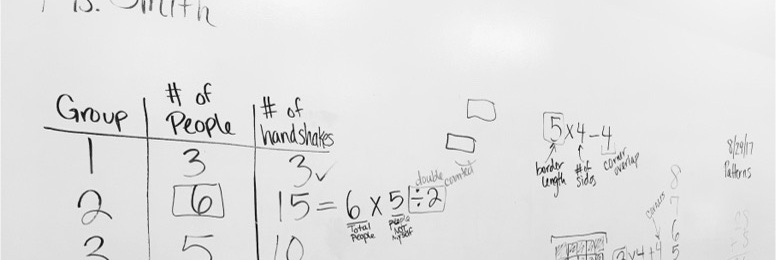 Ms. Smith
Group # of People # of handshakes
1 3 3 ✓
2 6 15 = 6 × 5 ÷ 2
double counted
Total People
People NOT myself
3 5 10
5 × 4 - 4
border length
# of sides
corner overlap
8/29/17
Patterns
corners
8
7
6
5